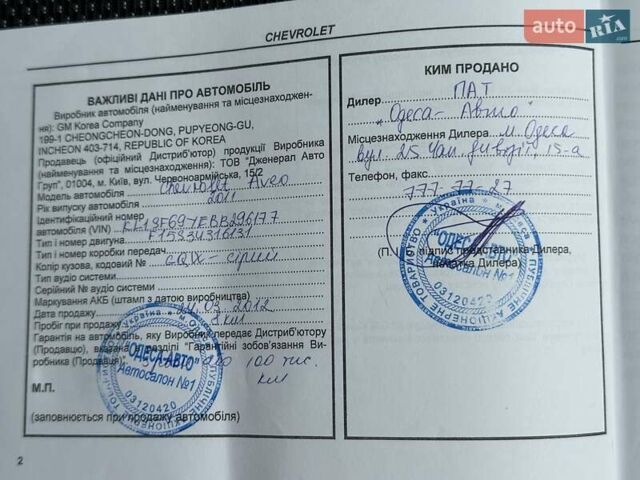 auto RIA.com
CHEVROLET
ВАЖЛИВІ ДАНІ ПРО АВТОМОБІЛЬ
Виробник автомобіля (найменування та місцезнаходжен-
ня): GM Korea Company
199-1 CHEONGCHEON-DONG, PUPYEONG-GU,
INCHEON 403-714, REPUBLIC OF KOREA
Продавець (офіційний Дистриб'ютор) продукції Виробника
(найменування та місцезнаходження): ТОВ "Дженерал Авто
Груп", 01004, м. Київ, вул. Червоноармійська, 15/2
Модель автомобіля Chevrolet Aveo
Рік випуску автомобіля 2011
Ідентифікаційний номер
автомобіля (VIN)
Тип і номер двигуна
Тип і номер коробки передач
Колір кузова, кодовий № сірий
Тип аудіо системи
Серійний № аудіо системи
Маркування АКБ (штамп з датою виробництва)
Дата продажу 03 2012
Пробіг при продажу 3 км
Гарантія на автомобіль, яку Виробник передає Дистриб'ютору
(Продавцю), вказана в розділі "Гарантійні зобов'язання Ви-
робника (Продавця)" 100 тис.
км
М.П.
(заповнюється при продажу автомобіля)
Україна
"ОДЕСА-АВТО"
Автосалон №1
03120420
2
КИМ ПРОДАНО
Дилер ПАТ
"Одеса-Авто"
Місцезнаходження Дилера м. Одеса
вул. 25 Чап. дивізії, 15-а
Телефон, факс
777-77-27
(П.І. підпис представника Дилера,
печатка Дилера)
Україна
ПУБЛІЧНЕ АКЦІОНЕРНЕ ТОВАРИСТВО
"ОДЕСА-АВТО"
Автосалон №1
03120420